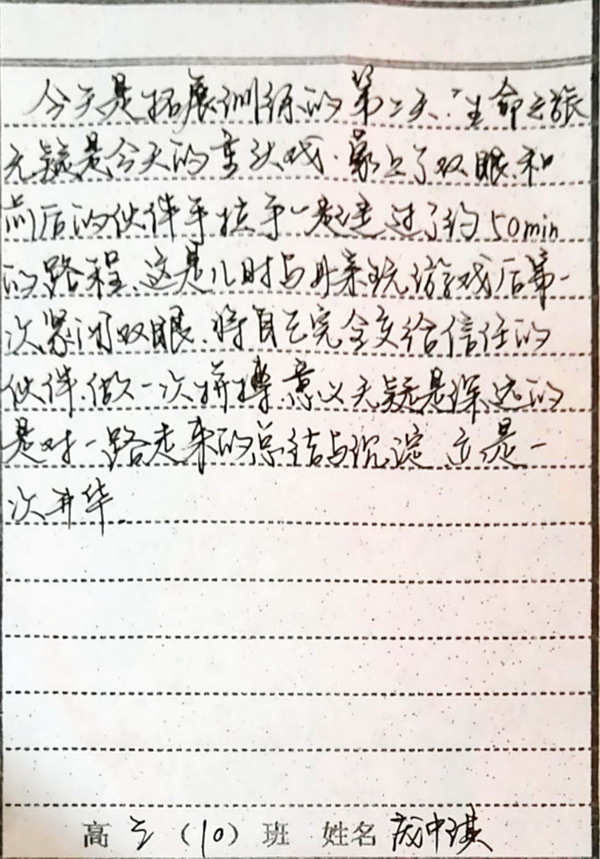 今天是拓展训练的第二天."生命之旅
无疑是今天的重头戏.蒙上了双眼.和
前后的伙伴手拉手一起走过了约50min
的路程.这是儿时与母亲玩游戏后第一
次紧闭双眼.将自己完全交给信任的
伙伴.做一次拼搏.意义无疑是深远的
是对一路走来的总结与沉淀 立是一
次升华.
高 三 (10) 班 姓名 中琪